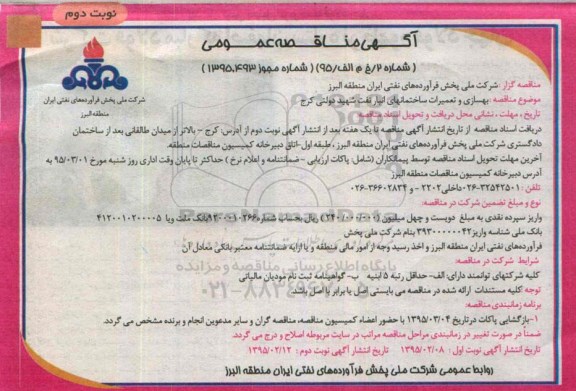 نوبت دوم
آگهی مناقصه عمومی
( شماره ۲/خ م الف/۹۵) ( شماره مجوز ۱۳۹۵.۴۹۳ )
شرکت ملی پخش فرآورده‌های نفتی ایران
منطقه البرز
مناقصه گزار: شرکت ملی پخش فرآورده‌های نفتی ایران منطقه البرز
موضوع مناقصه: بهسازی و تعمیرات ساختمانهای انبار نفت شهید دولتی کرج
تاریخ ، مهلت ، نشانی محل دریافت و تحویل اسناد مناقصه:
دریافت اسناد مناقصه از تاریخ انتشار آگهی مناقصه تا یک هفته بعد از انتشار آگهی نوبت دوم از آدرس: کرج – بالاتر از میدان طالقانی بعد از ساختمان
دادگستری شرکت ملی پخش فرآورده‌های نفتی ایران منطقه البرز ، طبقه اول-اتاق دبیرخانه کمیسیون مناقصات منطقه.
آخرین مهلت تحویل اسناد مناقصه توسط پیمانکاران (شامل: پاکات ارزیابی – ضمانتنامه و اعلام نرخ ) حداکثر تا پایان وقت اداری روز شنبه مورخ ۹۵/۰۳/۰۱ به
آدرس دبیرخانه کمیسیون مناقصات منطقه البرز
تلفن : ۳۲۵۴۲۵۰۱-۰۲۶ داخلی ۲۲۰۲ – و ۳۶۶۰۲۸۳۴-۰۲۶
نوع و مبلغ تضمین شرکت در مناقصه:
واریز سپرده نقدی به مبلغ دویست و چهل میلیون (۲۴۰،۰۰۰،۰۰۰) ریال بحساب شماره بانک ملت ویا ۴۱۲۰۰۱۰۲۰۰۰۰۵
بانک ملی شناسه واریز ۳۹۳۰۰۰۰۰۰۴۲ بنام شرکت ملی پخش
فرآورده‌های نفتی ایران منطقه البرز و اخذ رسید وجه از امور مالی منطقه و یا ارایه ضمانتنامه معتبر بانکی معادل آن
شرایط شرکت در مناقصه:
کلیه شرکتهای توانمند دارای: الف- حداقل رتبه ۵ ابنیه ب- گواهینامه ثبت نام مودیان مالیاتی
توجه: کلیه مستندات ارائه شده در مناقصه می بایستی اصل یا برابر با اصل باشد.
برنامه زمانبندی مناقصه:
۱-بازگشایی پاکات در تاریخ ۱۳۹۵/۰۳/۰۴ با حضور اعضاء کمیسیون مناقصه، مناقصه گران و سایر مدعوین انجام و برنده مشخص می گردد.
ضمناً در صورت تغییر در زمانبندی مراحل مناقصه مراتب در سایت مربوطه اصلاح و درج می گردد.
تاریخ انتشار آگهی نوبت اول : ۱۳۹۵/۰۲/۰۸ تاریخ انتشار آگهی نوبت دوم : ۱۳۹۵/۰۲/۱۲
روابط عمومی شرکت ملی پخش فرآورده‌های نفتی ایران منطقه البرز
پایگاه اطلاع رسانی مناقصه و مزایده